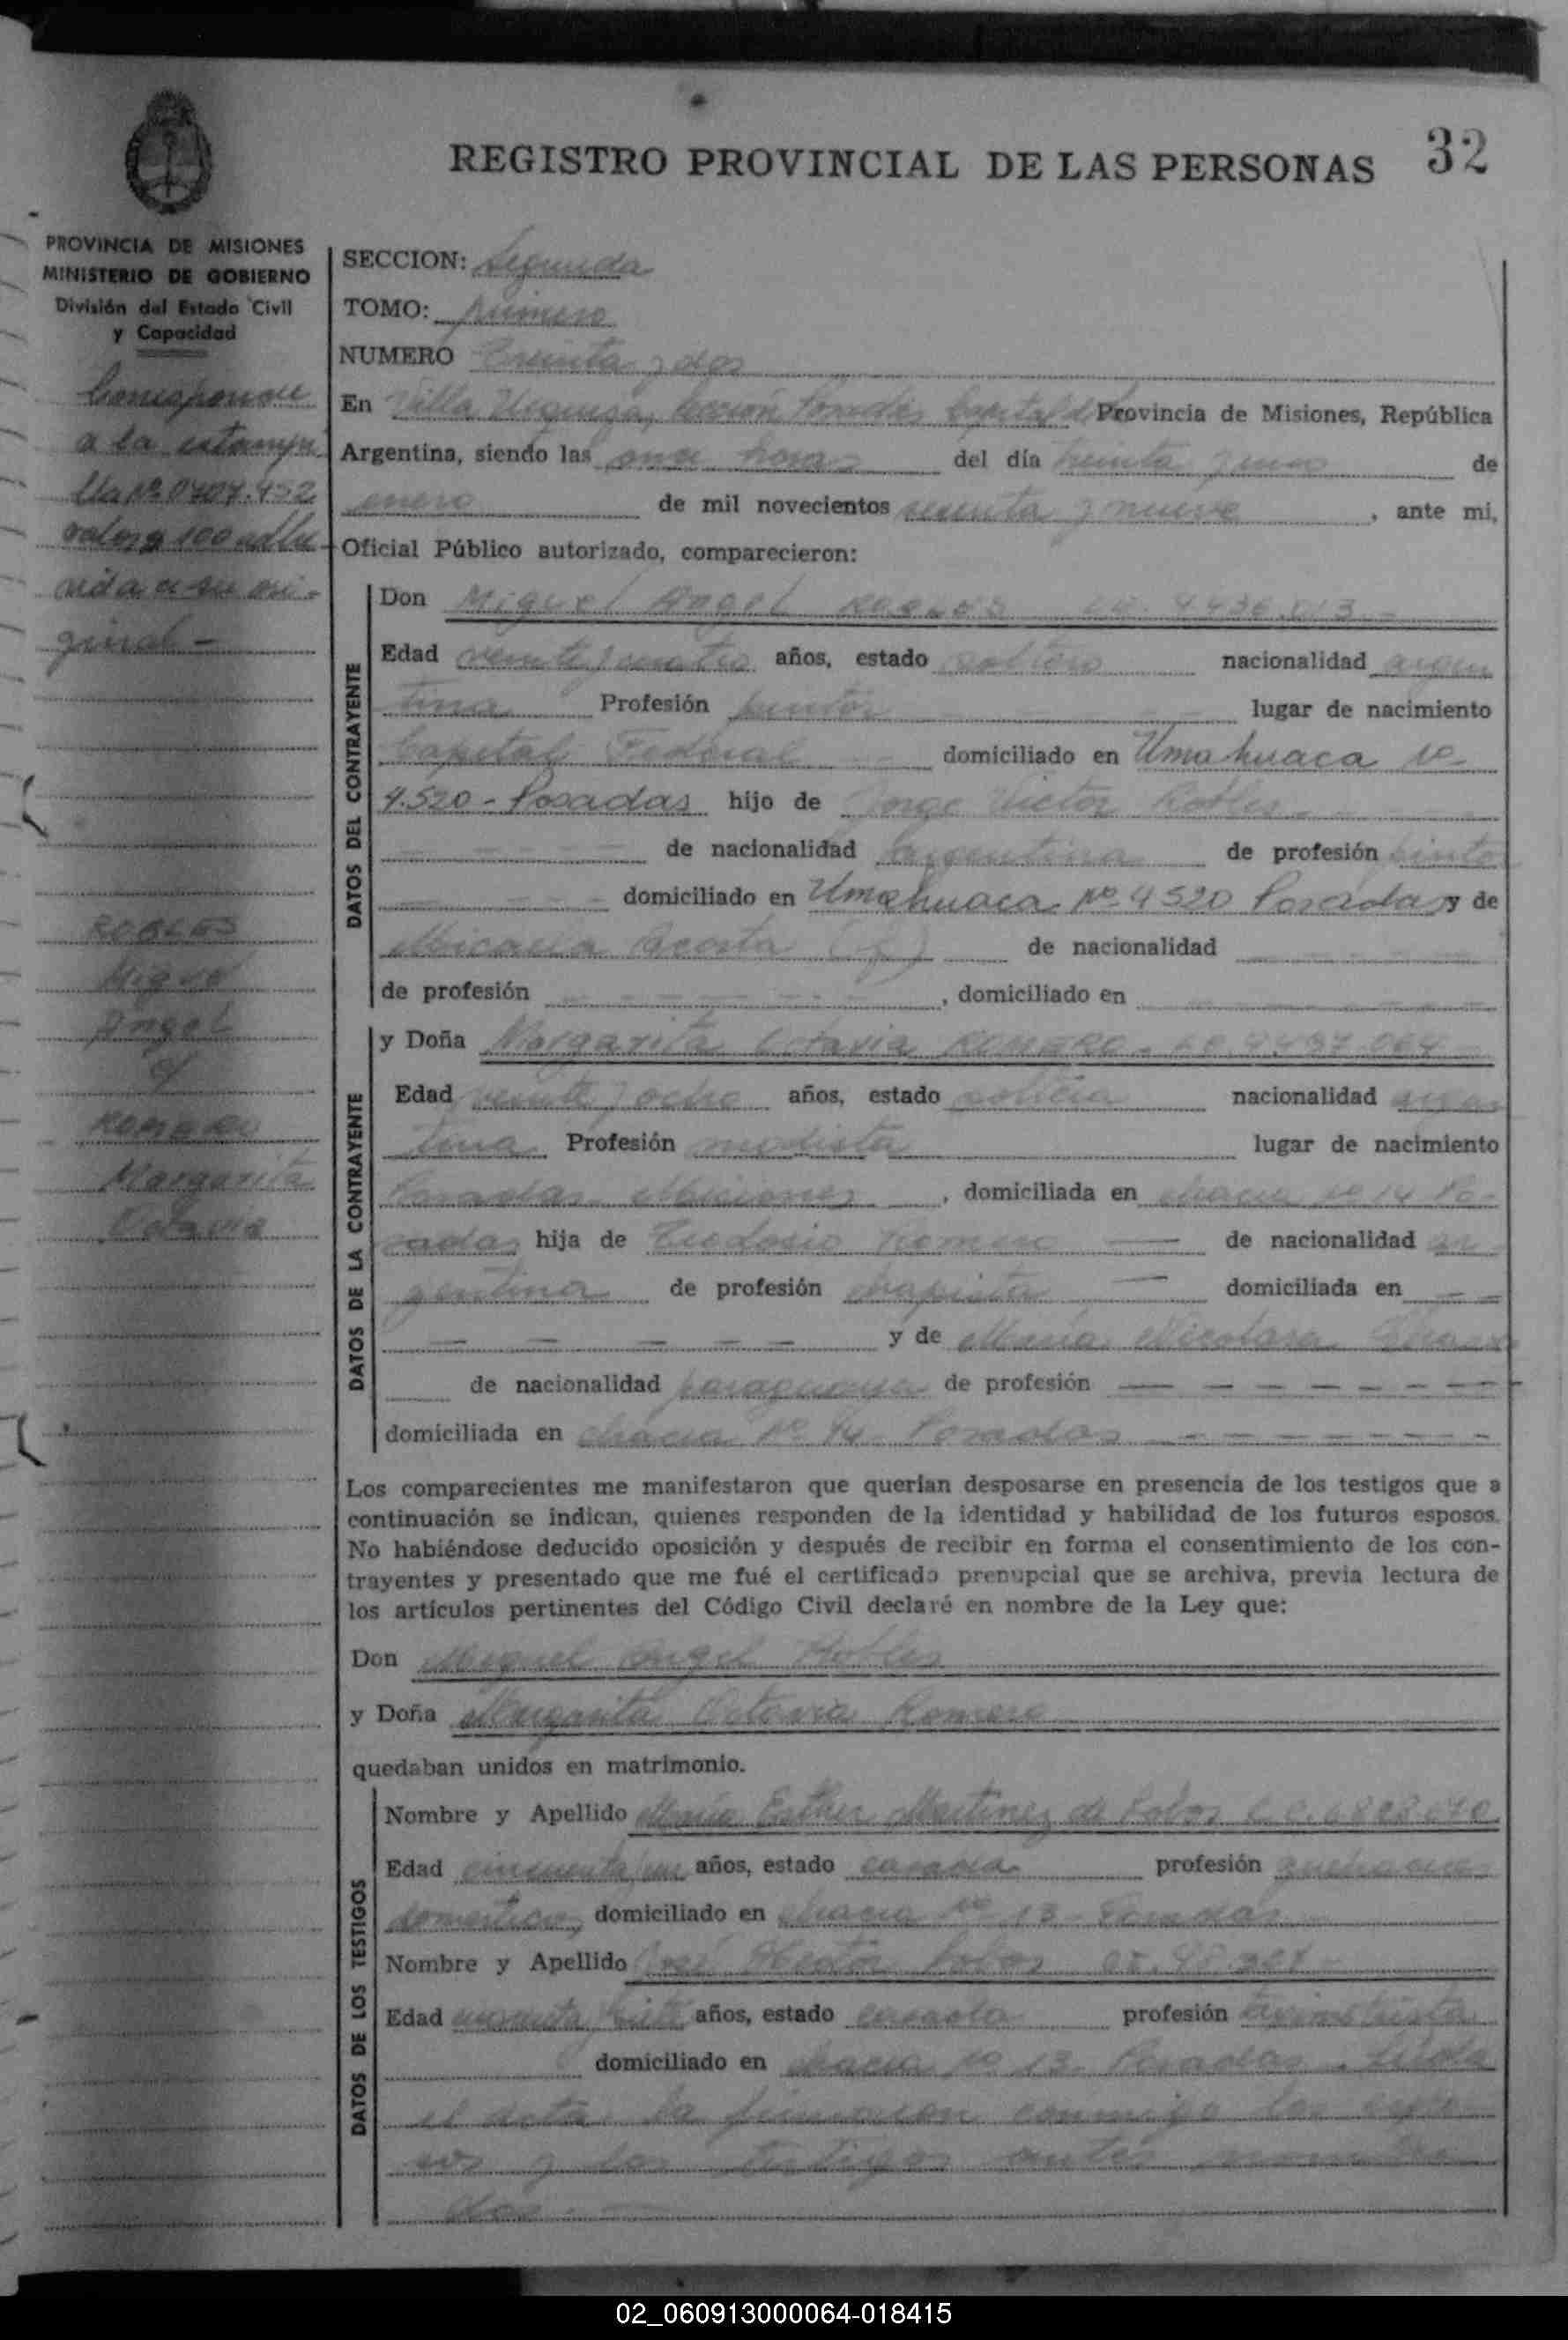 REGISTRO PROVINCIAL DE LAS PERSONAS 32
PROVINCIA DE MISIONES
MINISTERIO DE GOBIERNO
División del Estado Civil
y Capacidad
Corresponde
a la estampi
lla Nº 0707.452
valor $ 100
a su ori-
ginal -
ROBLES
Miguel
Angel
c/
ROMERO
Margarita
Octavia
SECCION: Segunda
TOMO: primero
NUMERO Treinta y dos
En Villa Urquiza, Capital de Provincia de Misiones, República
Argentina, siendo las once horas del día treinta y uno de
enero de mil novecientos sesenta y nueve, ante mi,
Oficial Público autorizado, comparecieron:
DATOS DEL CONTRAYENTE
Don Miguel Angel ROBLES
Edad veinte y cuatro años, estado soltero nacionalidad argen
tina Profesión pintor lugar de nacimiento
Capital Federal domiciliado en Umahuaca Nº
4.520 - Posadas hijo de Jorge Victor Robles
de nacionalidad argentina de profesión pintor
domiciliado en Umahuaca Nº 4520 Posadas y de
Micaela Acosta (f) de nacionalidad
de profesión , domiciliado en
DATOS DE LA CONTRAYENTE
y Doña Margarita Octavia ROMERO
Edad veinte y ocho años, estado soltera nacionalidad argen
tina Profesión modista lugar de nacimiento
Posadas Misiones , domiciliada en chacra Nº 14 Po-
sadas hija de Teodosio Romero de nacionalidad ar
gentina de profesión chapista domiciliada en
y de María Nicolasa
de nacionalidad paraguaya de profesión
domiciliada en chacra Nº 14 Posadas
Los comparecientes me manifestaron que querían desposarse en presencia de los testigos que a
continuación se indican, quienes responden de la identidad y habilidad de los futuros esposos.
No habiéndose deducido oposición y después de recibir en forma el consentimiento de los con-
trayentes y presentado que me fué el certificado prenupcial que se archiva, previa lectura de
los artículos pertinentes del Código Civil declaré en nombre de la Ley que:
Don Miguel Angel Robles
y Doña Margarita Octavia Romero
quedaban unidos en matrimonio.
DATOS DE LOS TESTIGOS
Nombre y Apellido María Esther Martinez de
Edad cincuenta un años, estado casada profesión quehaceres
domesticos, domiciliado en chacra Nº 13 Posadas
Nombre y Apellido José
Edad siete años, estado casado profesión
domiciliado en chacra Nº 13 Posadas. Leída
el acta la firmaron conmigo los espo
sos y los testigos antes nombra
dos -
02_060913000064-018415